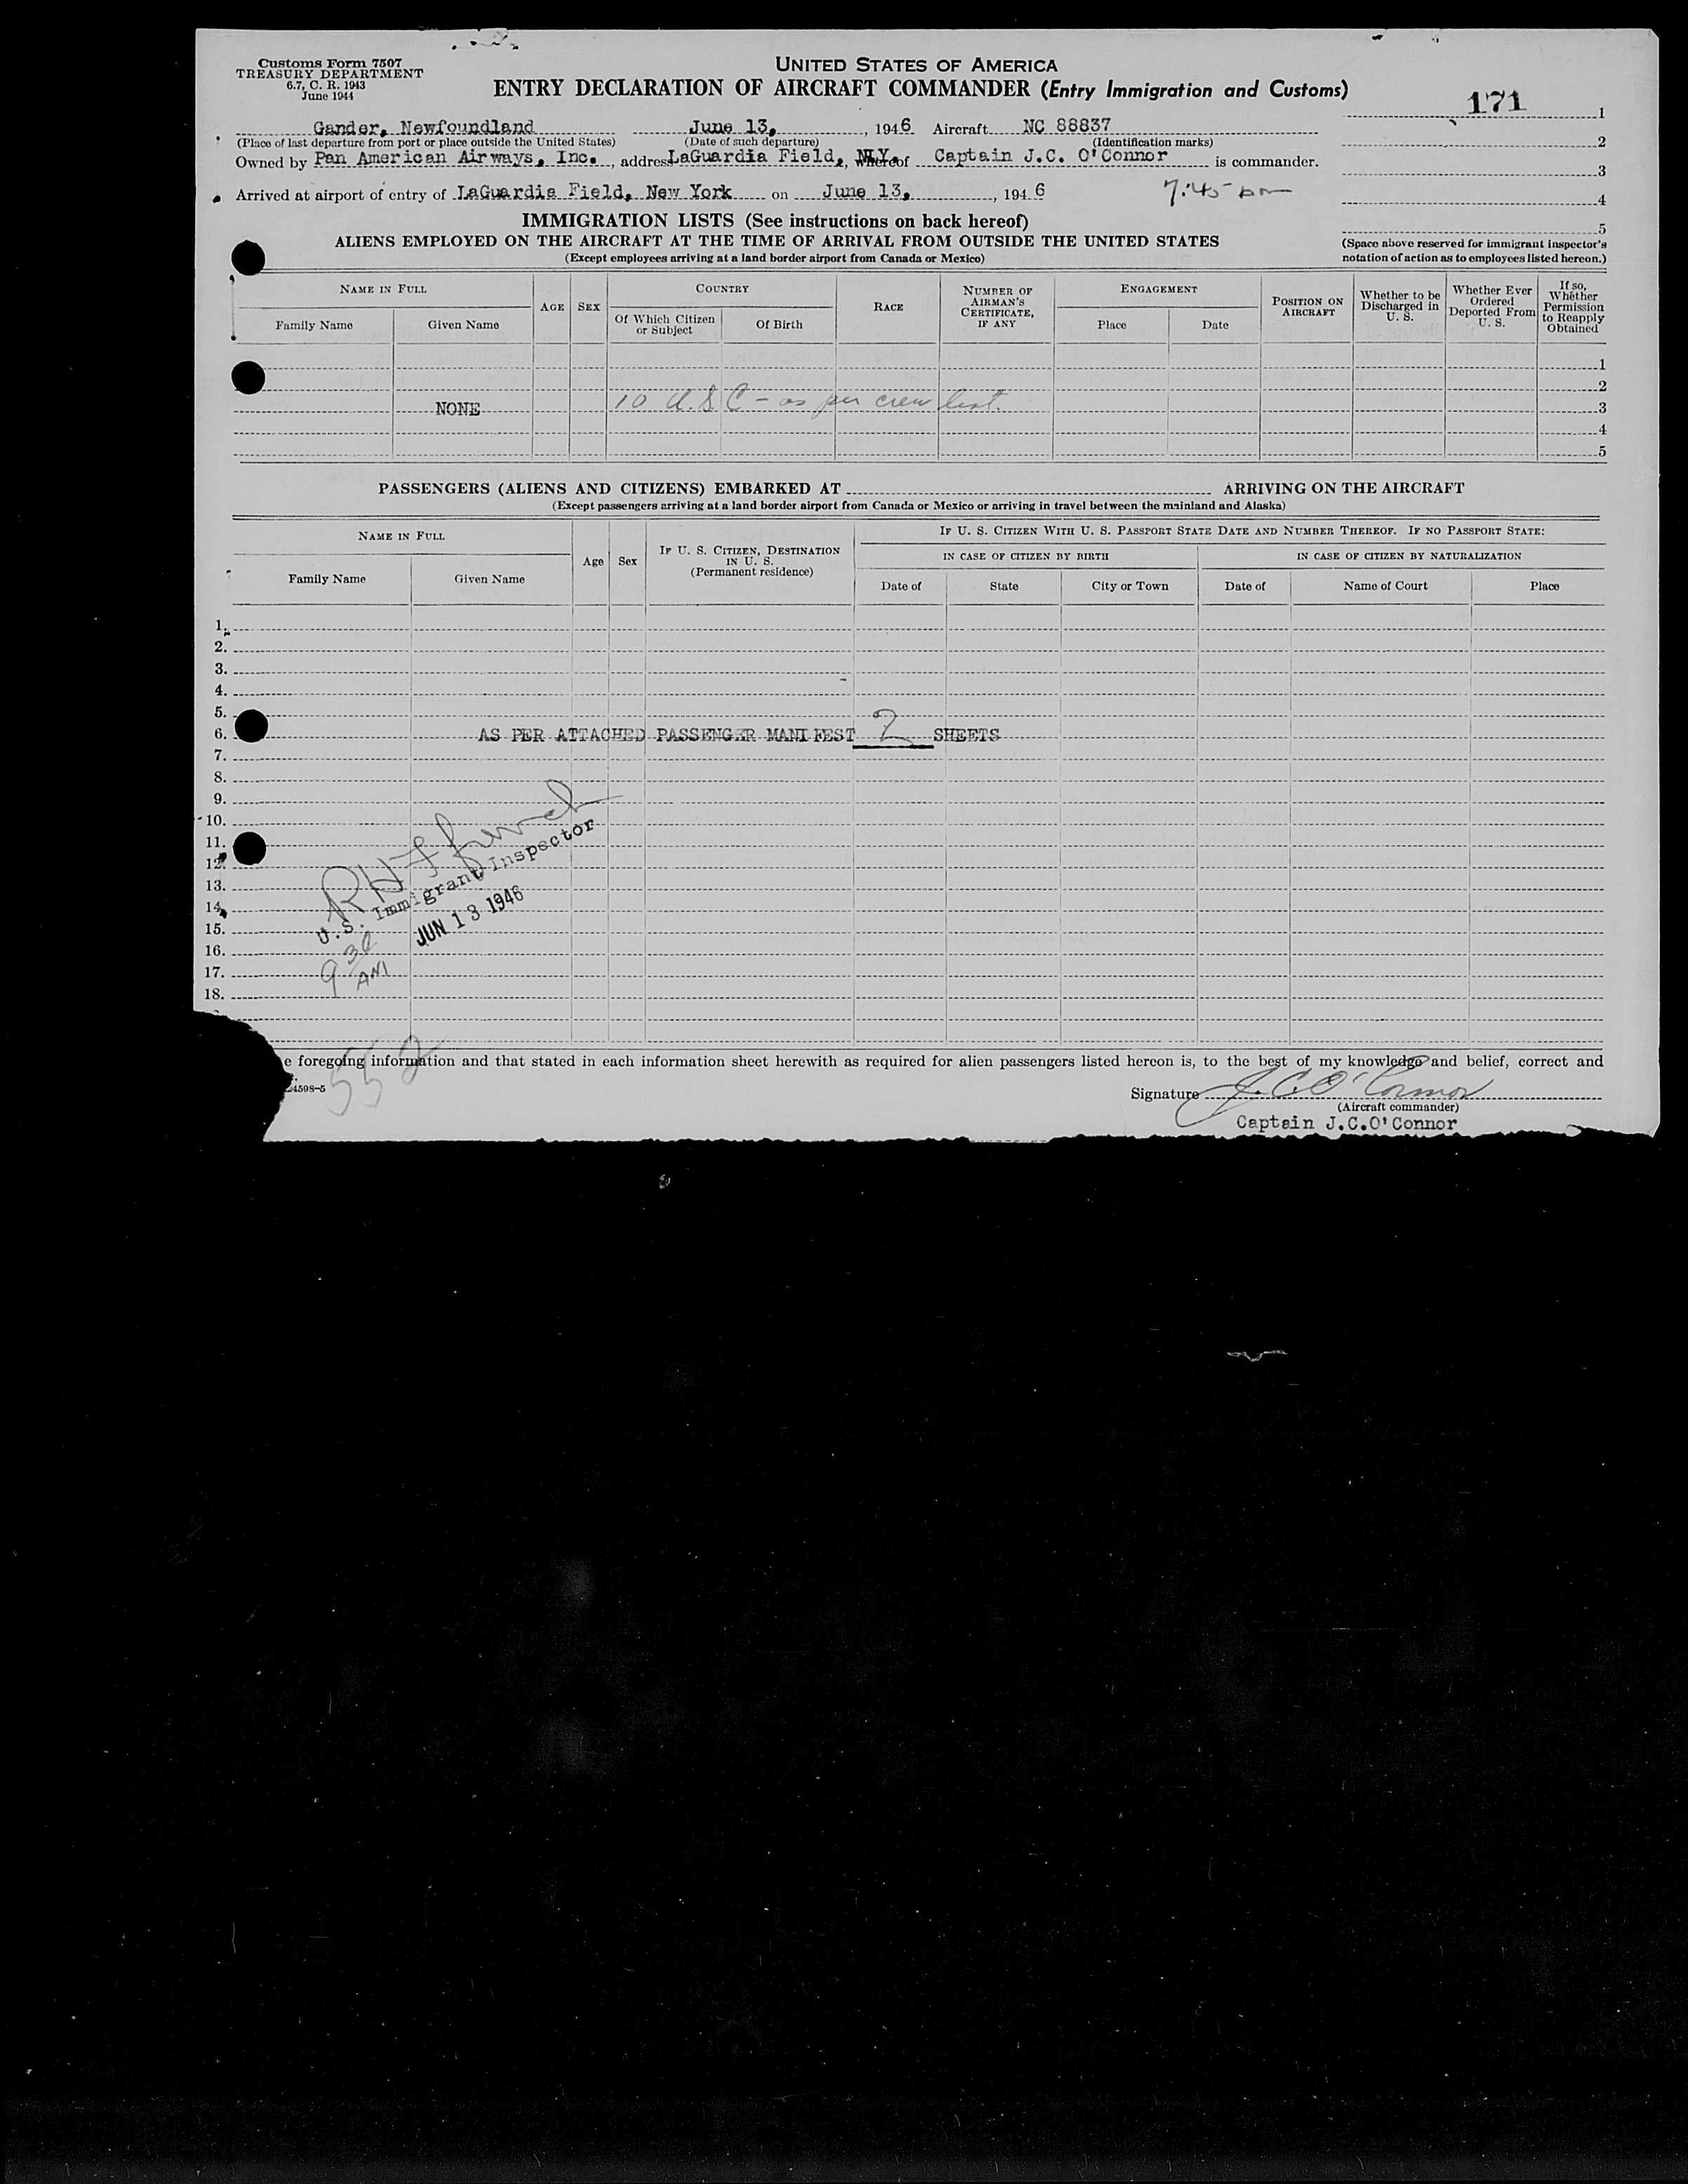 Customs Form 7507
TREASURY DEPARTMENT
6.7, C. R. 1943
June 1944
UNITED STATES OF AMERICA
ENTRY DECLARATION OF AIRCRAFT COMMANDER (Entry Immigration and Customs)
171 1
Gander, Newfoundland June 13, , 1946 Aircraft NC 88837
2
(Place of last departure from port or place outside the United States) (Date of such departure) (Identification marks)
Owned by Pan American Airways, Inc. , address LaGuardia Field, N.Y. , whereof Captain J.C. O'Connor is commander.
3
Arrived at airport of entry of LaGuardia Field, New York on June 13, , 1946 7:45 pm
4
IMMIGRATION LISTS (See instructions on back hereof)
5
ALIENS EMPLOYED ON THE AIRCRAFT AT THE TIME OF ARRIVAL FROM OUTSIDE THE UNITED STATES
(Except employees arriving at a land border airport from Canada or Mexico)
(Space above reserved for immigrant inspector's
notation of action as to employees listed hereon.)
NAME IN FULL
Family Name Given Name
AGE SEX
COUNTRY
Of Which Citizen or Subject Of Birth
RACE
NUMBER OF AIRMAN'S CERTIFICATE, IF ANY
ENGAGEMENT
Place Date
POSITION ON AIRCRAFT
Whether to be Discharged in U. S.
Whether Ever Ordered Deported From U. S.
If so, Whether Permission to Reapply Obtained
1
2
NONE 10 U.S.C - as per crew list. 3
4
5
PASSENGERS (ALIENS AND CITIZENS) EMBARKED AT ARRIVING ON THE AIRCRAFT
(Except passengers arriving at a land border airport from Canada or Mexico or arriving in travel between the mainland and Alaska)
NAME IN FULL
Family Name Given Name
Age Sex
IF U. S. CITIZEN, DESTINATION IN U. S.
(Permanent residence)
IF U. S. CITIZEN WITH U. S. PASSPORT STATE DATE AND NUMBER THEREOF. IF NO PASSPORT STATE:
IN CASE OF CITIZEN BY BIRTH IN CASE OF CITIZEN BY NATURALIZATION
Date of State City or Town Date of Name of Court Place
1.
2.
3.
4.
5.
6. AS PER ATTACHED PASSENGER MANIFEST 2 SHEETS
7.
8.
9.
10.
11.
12.
13.
14.
15.
16.
17.
18.
U.S. Immigrant Inspector
JUN 13 1946
9 30 AM
e foregoing information and that stated in each information sheet herewith as required for alien passengers listed hereon is, to the best of my knowledge and belief, correct and
24598-5
552
Signature J.C. O'Connor
(Aircraft commander)
Captain J.C.O'Connor